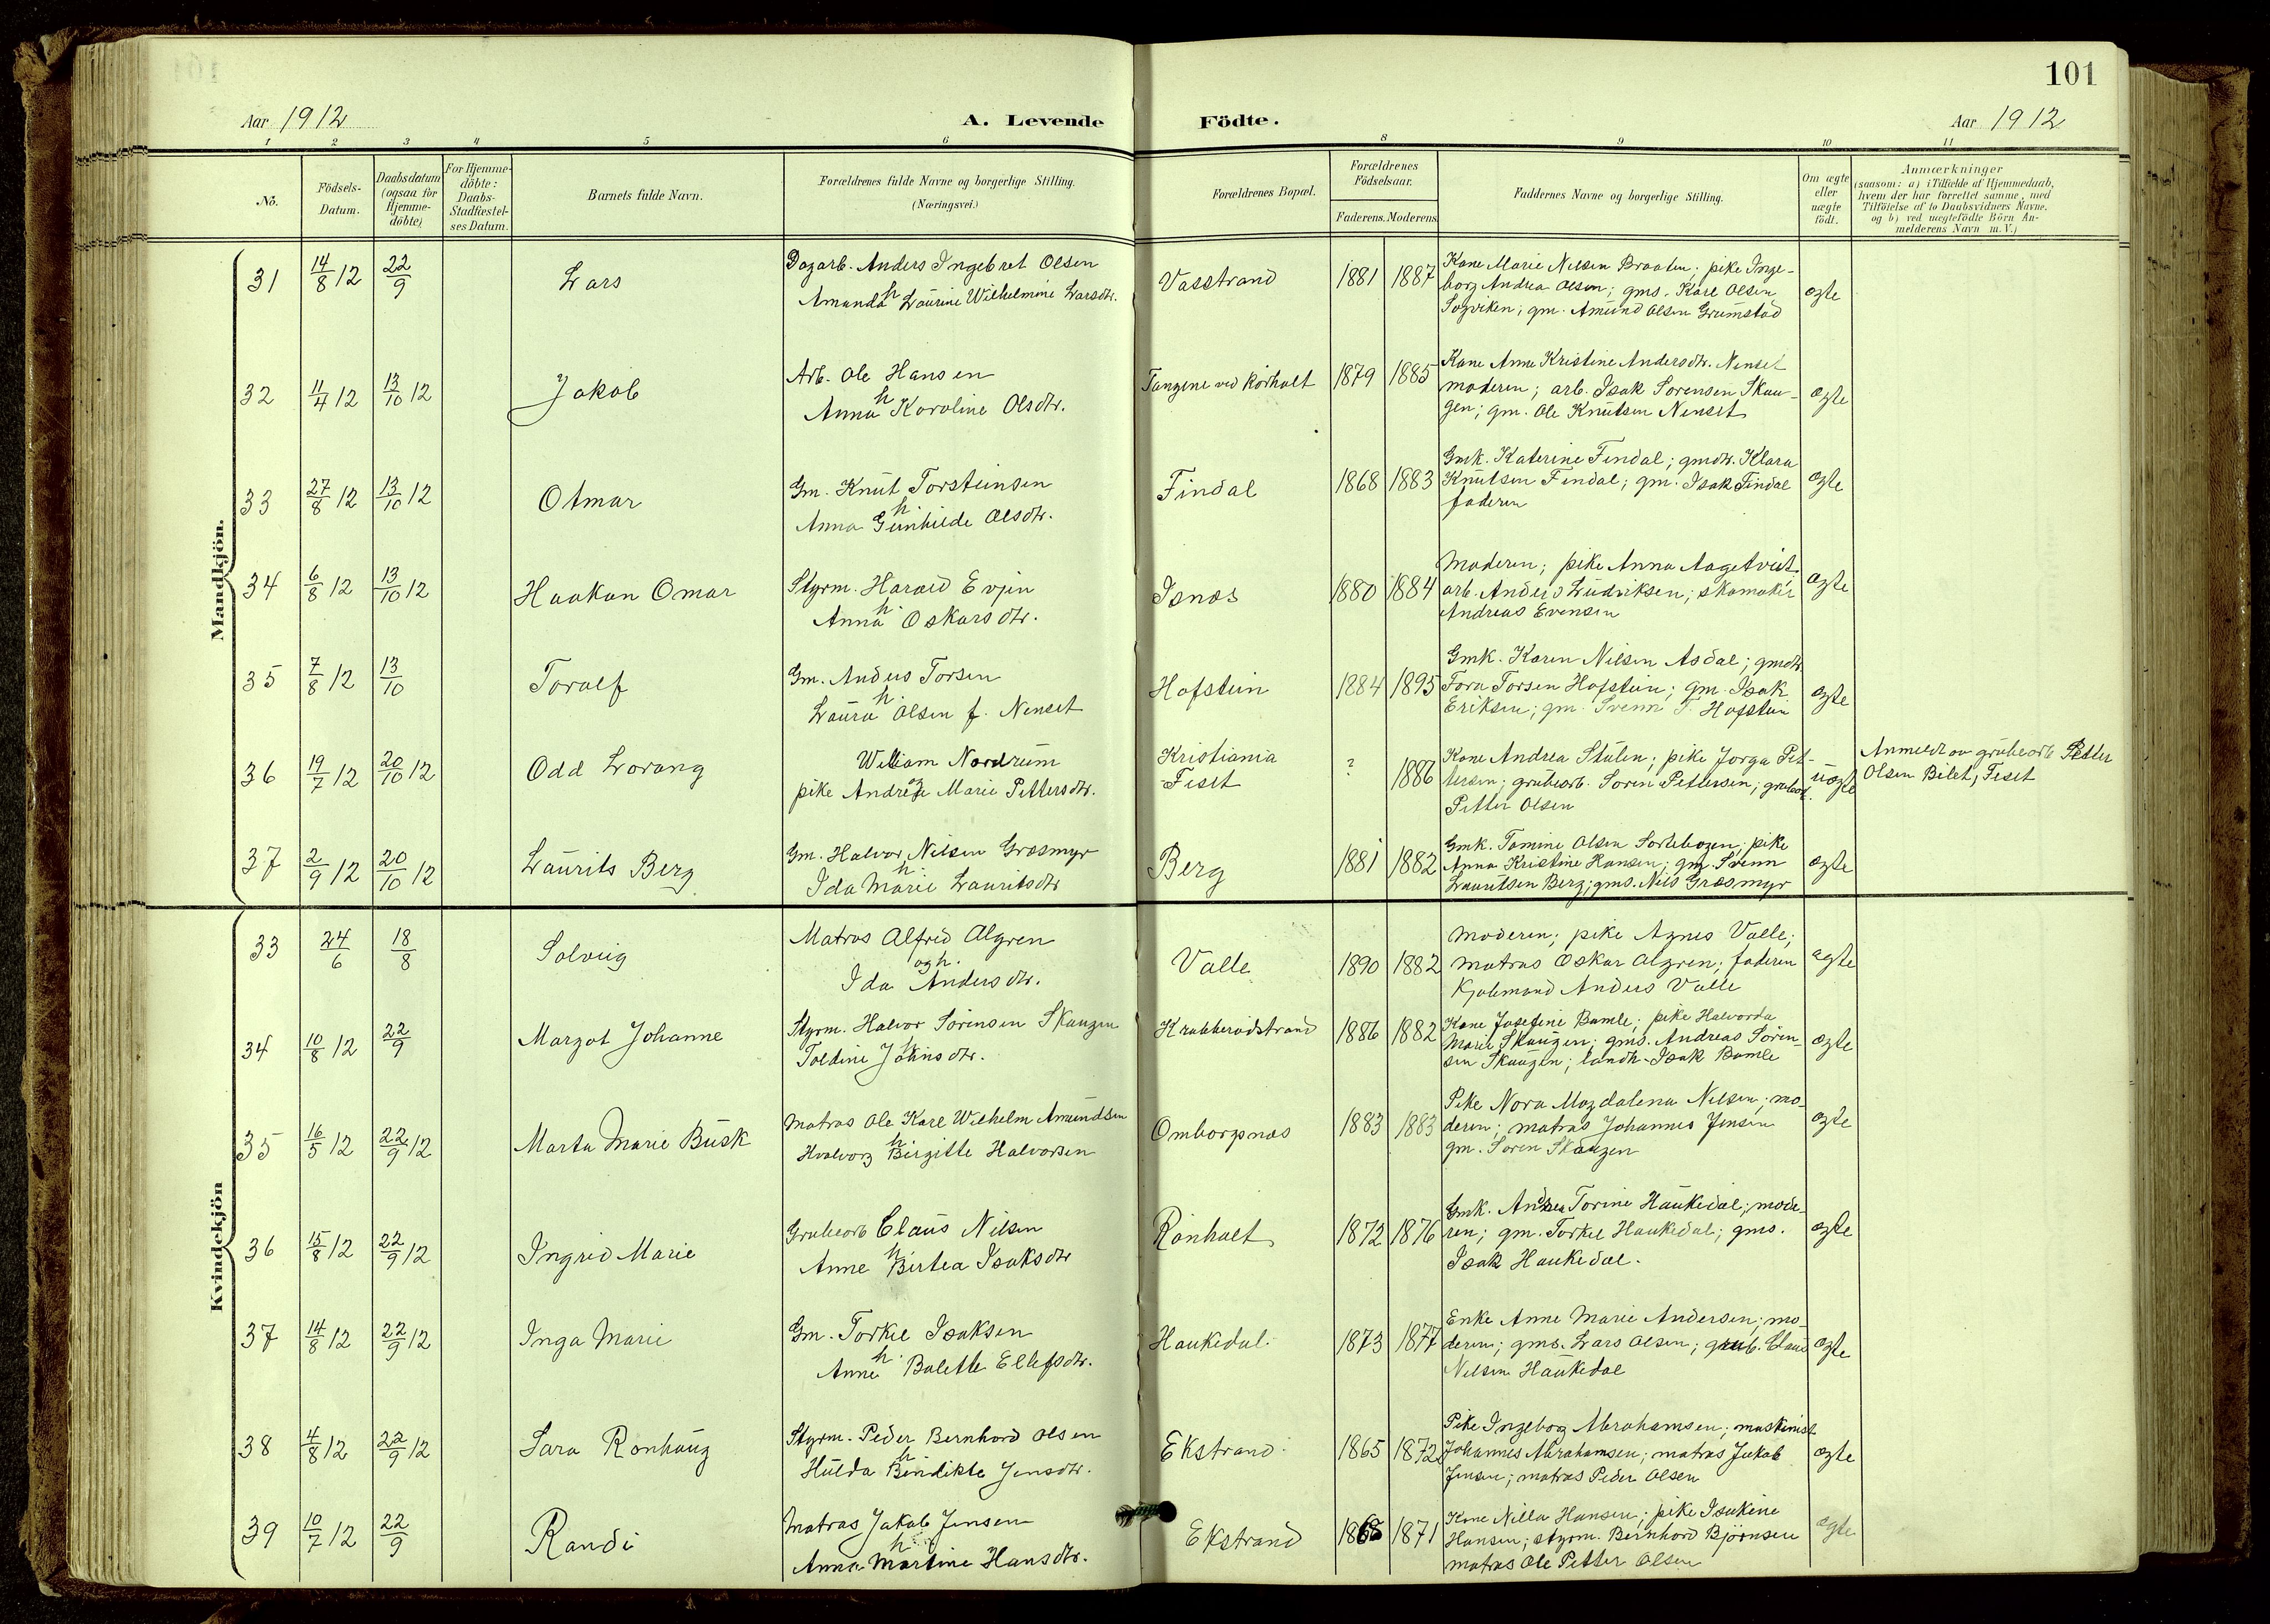 101
Aar 1912
A. Levende
Födte.
Aar 1912
1 2 3 4 5 6 8 9 10 11
No.
Födsels-
Datum.
Daabsdatum
(ogsaa for
Hjemme-
döbte)
For Hjemme-
döbte:
Daabs-
Stadfæstel-
ses Datum.
Barnets fulde Navn.
Forældrenes fulde Navne og borgerlige Stilling.
(Næringsvei.)
Forældrenes Bopæl.
Forældrenes
Födselsaar.
Faderens. Moderens.
Faddernes Navne og borgerlige Stilling.
Om ægte
eller
uægte
födt.
Anmærkninger
(saasom: a) i Tilfælde af Hjemmedaab,
hvem der har forrettet samme, med
Tilföielse af to Daabsvidners Navne.
og b) ved uægtefödte Börn An-
melderens Navn m. V.)
Mandkjön.
31 14/8 12 22/9 Lars
Dagarb. Anders Ingebret Olsen
h
Amanda Laurine Wilhelmine Larsdtr.
Vasstrand 1881 1887
Kone Marie Nilsen Braaten; pike Inge-
borg Andrea Olsen; gms. Karl Olsen
Sogviken; gm. Amund Olsen Grumstad
ægte
32 11/4 12 13/10 12 Jakob
Arb. Ole Hansen
h
Anna Karoline Olsdtr.
Tangene ved Kørholt 1879 1885
Kone Anne Kristine Andersdtr. Nenset
moderen; arb. Isak Sorensen Skau-
gen; gm. Ole Knutsen Nenset
ægte
33 27/8 12 13/10 12 Otmar
Gm. Knut Torsteinsen
h
Anna Gunhilde Olsdtr.
Findal 1868 1883
Gmk. Katerine Findal; gmdtr. Klara
Knutsen Findal; gm. Isak Findal
faderen
ægte
34 6/8 12 13/10 12 Haakon Omar
Styrm. Harald Evjen
h.
Anna Oskarsdtr.
Isnes 1880 1884
Moderen; pike Anna Aagetveit
arb. Anders Ludviksen; skomaker
Andreas Evensen
ægte
35 7/8 12 13/10 Toralf
Gm. Anders Torsen
h
Laura Olsen f. Nenset
Hafstein 1884 1895
Gmk. Karen Nilsen Asdal; gmdtr
Tora Torsen Hafstein; gm. Isak
Eriksen; gm. Svenn T. Hafstein
ægte
36 19/7 12 20/10 12 Odd Lorang
William Nordrum
og
pike Andrea Marie Pettersdtr.
Kristiania
Feset
? 1886
Kone Andrea Stulen; pike Jorga Pet-
tersen; grubearb. Soren Pettersen; grubearb.
Petter Olsen
uægte
Anmeldt av grubearb Petter
Olsen Bilet, Feset
37 2/9 12 20/10 12 Laurits Berg
Gm. Halvor Nilsen Grasmyr
h.
Ida Marie Lauritsdtr
Berg 1881 1882
Gmk. Tomine Olsen Sortebogen; pike
Anna Kristine Hansen; gm. Svenn
Lauritsen Berg; gms. Nils Grasmyr
ægte
Kvindekjön
33 24/6 18/8 Solveig
Matros Alfred Algren
og h.
Ida Andersdtr.
Valle 1890 1882
Moderen; pike Agnes Valle;
matros Oskar Algren; faderen
Kjolemand Anders Valle
ægte
34 10/8 12 22/9 Margot Johanne
Styrm. Halvor Sörensen Skaugen
h
Toldine Johnsdtr.
Krabberödstrand 1886 1882
Kone Josefine Bamle; pike Halvorda
Marie Skaugen; gms. Andreas Sören-
sen Skaugen; landh. Isak Bamle
ægte
35 16/5 12 22/9 12 Marta Marie Busk
Matros Ole Karl Wilhelm Amundsen
h
Hvalvorg Birgitte Halvorsen
Omborgsnes 1883 1883
Pike Nora Magdalena Nilsen; mo-
deren; matros Johannes Jensen
gm. Soren Skaugen
ægte
36 15/8 12 22/9 12 Ingrid Marie
Grubearb Claus Nilsen
h
Anne Birtea Isaksdtr
Rönholt 1872 1876
Gmk. Andrea Torine Haukedal; mode-
ren; gm. Torkel Haukedal; gms.
Isak Haukedal.
ægte
37 14/8 12 22/9 12 Inga Marie
Gm. Torkel Isaksen
h.
Anne Bolette Ellefsdtr.
Haukedal. 1873 1877
Enke Anne Marie Andersen; mo-
deren; gms. Lars Olsen; grub. Claus
Nilsen Haukedal
ægte
38 4/8 12 22/9 12 Sara Ronhaug
Styrm. Peder Bernhard Olsen
h
Hulda Bendikte Jensdtr.
Ekstrand. 1865 1872
Pike Ingeborg Abrahamsen; maskinist
Johannes Abrahamsen; matros Jakob
Jensen; matros Peder Olsen
ægte
39 10/7 12 22/9 Randi
Matros Jakob Jensen
h
Anna Martine Hansdtr.
Ekstrand 1868 1871
Kone Nilla Hansen; pike Isakine
Hansen; styrm. Bernhard Björnsen
matros Ole Petter Olsen
ægte